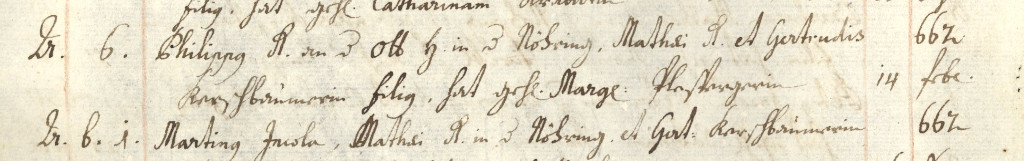 filig. hat gehl. Catharinam
U. 6. Philippg K. an d Obb H. in d Nöhring, Mathæi K. et Gertrudis 662
Kerschbäumerin filig, hat gehl. Marge: Plespergerin 14 febr.
U. 6. 1. Marting Incola, Mathæi K. in d Nöhring, et Gert: Kerschbäumerin 662